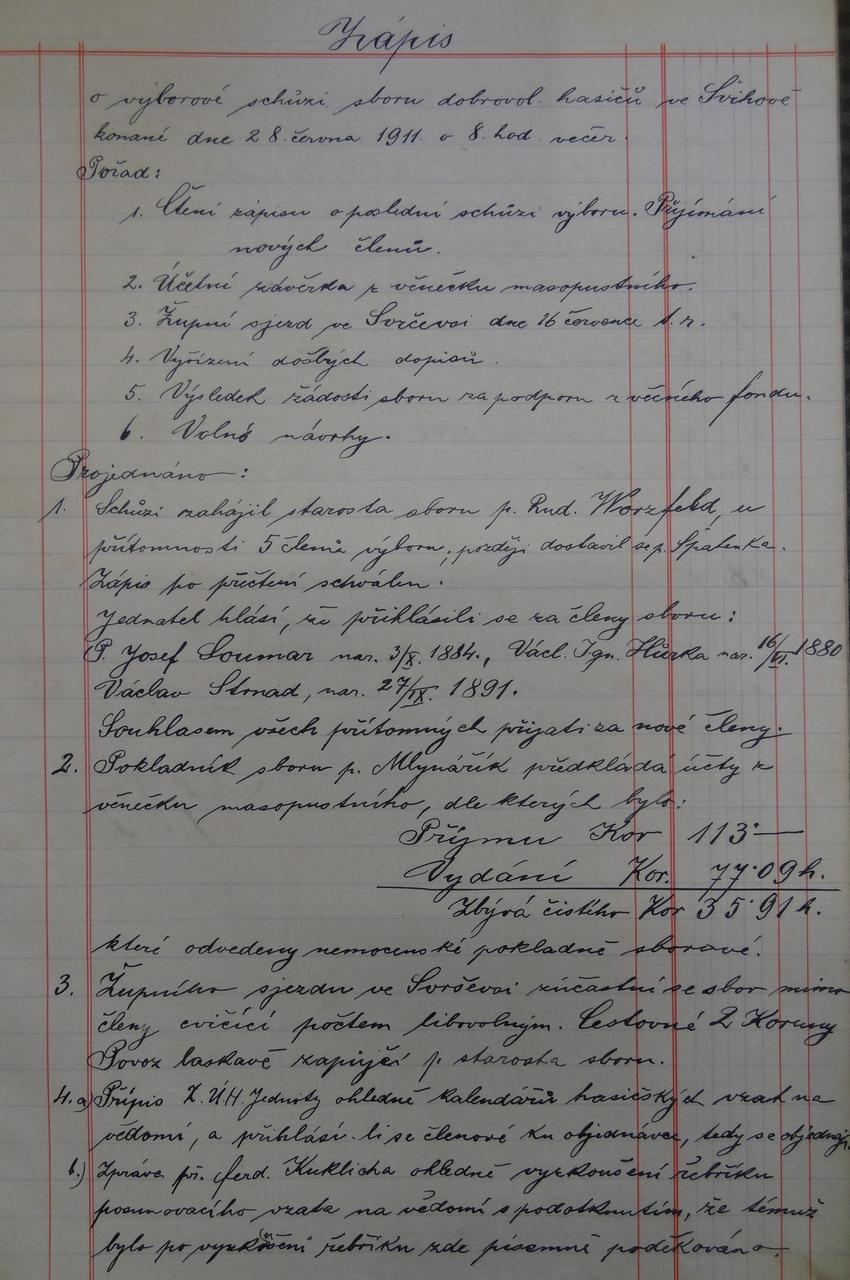 Zápis
o výborové schůzi sboru dobrovol. hasičů ve Švihově
konané dne 28. června 1911. o 8. hod. večer.
Pořad:
1. Čtení zápisu o poslední schůzi výboru. Přijímání
nových členů.
2. Účetní závěrka z věnečku masopustního.
3. Župní sjezd ve Svrčevsi dne 16 července t. r.
4. Vyřízení došlých dopisů.
5. Výsledek žádosti sboru za podporu z věčného fondu.
6. Volné návrhy.
Projednáno:
1. Schůzi zahájil starosta sboru p. Rud. Worzfeld, u
přítomnosti 5 členů výboru, později dostavil se p. Špatenka.
Zápis po přečtení schválen.
Jednatel hlásí, že přihlásili se za členy sboru:
P. Josef Soumar nar. 3/X. 1884., Václ. Ign. Hůrka nar. 16/VI. 1880
Václav Strnad, nar. 27/IX. 1891.
Souhlasem všech přítomných přijati za nové členy.
2. Pokladník sboru p. Mlynářík předkládá účty z
věnečku masopustního, dle kterých bylo:
Příjmu Kor 113·—
Vydání Kor. 77·09 h.
Zbývá čistého Kor 35·91 h.
které odvedeny nemocenské pokladně sborové.
3. Župního sjezdu ve Svrčevsi zúčastní se sbor mimo
členy cvičící počtem libovolným. Cestovné 2 Koruny
Povoz laskavě zapůjčí p. starosta sboru.
4. a) Přípis Z. Ú. H. Jednoty ohledně kalendářů hasičských vzat na
vědomí, a přihlásí-li se členové ku objednávce, tedy se objednají.
b.) Zpráva př. Ferd. Kuklicha ohledně vyzkoušení řebříku
posunovacího vzata na vědomí s podotknutím, že témuž
bylo po vyzkoušení řebříku zde písemně poděkováno.